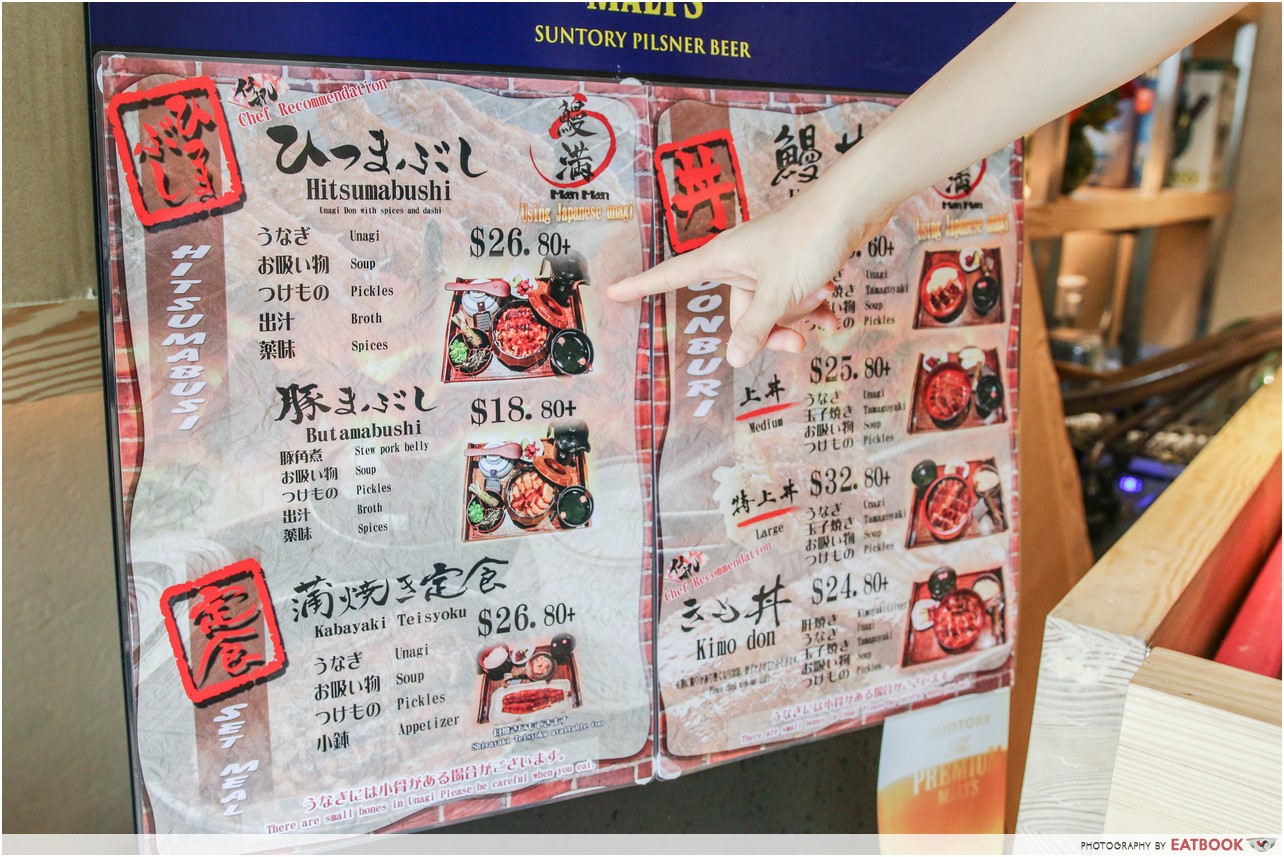 MALT'S
SUNTORY PILSNER BEER
ひつまぶし
Chef Recommendation
ひつまぶし
Hitsumabushi
Unagi Don with spices and dashi
鰻満
Man Man
Using Japanese unagi
HITSUMABUSI
うなぎ Unagi
お吸い物 Soup
つけもの Pickles
出汁 Broth
薬味 Spices
$26.80+
豚まぶし
Butamabushi
$18.80+
豚角煮 Stew pork belly
お吸い物 Soup
つけもの Pickles
出汁 Broth
薬味 Spices
定食
SET MEAL
蒲焼き定食
Kabayaki Teisyoku
$26.80+
うなぎ Unagi
お吸い物 Soup
つけもの Pickles
小鉢 Appetizer
Shirayaki Teisyoku available too
うなぎには小骨がある場合がございます。
There are small bones in Unagi Please be careful when you eat.
丼
DONBURI
鰻丼
満
Man Man
Using Japanese unagi
.60+
Unagi
焼き Tamagoyaki
い物 Soup
もの Pickles
上丼
Medium
$25.80+
うなぎ Unagi
玉子焼き Tamagoyaki
お吸い物 Soup
つけもの Pickles
特上丼
Large
$32.80+
うなぎ Unagi
玉子焼き Tamagoyaki
お吸い物 Soup
つけもの Pickles
Chef Recommendation
きも丼
Kimo don
$24.80+
肝焼き
うなぎ Unagi
玉子焼き Tamagoyaki
お吸い物 Soup
つけもの Pickles
うなぎには小骨がある場合がございます。
There are small bones in Unagi Please be careful when you eat.
SUNTORY
THE
PREMIUM
MALT'S
PHOTOGRAPHY BY EATBOOK